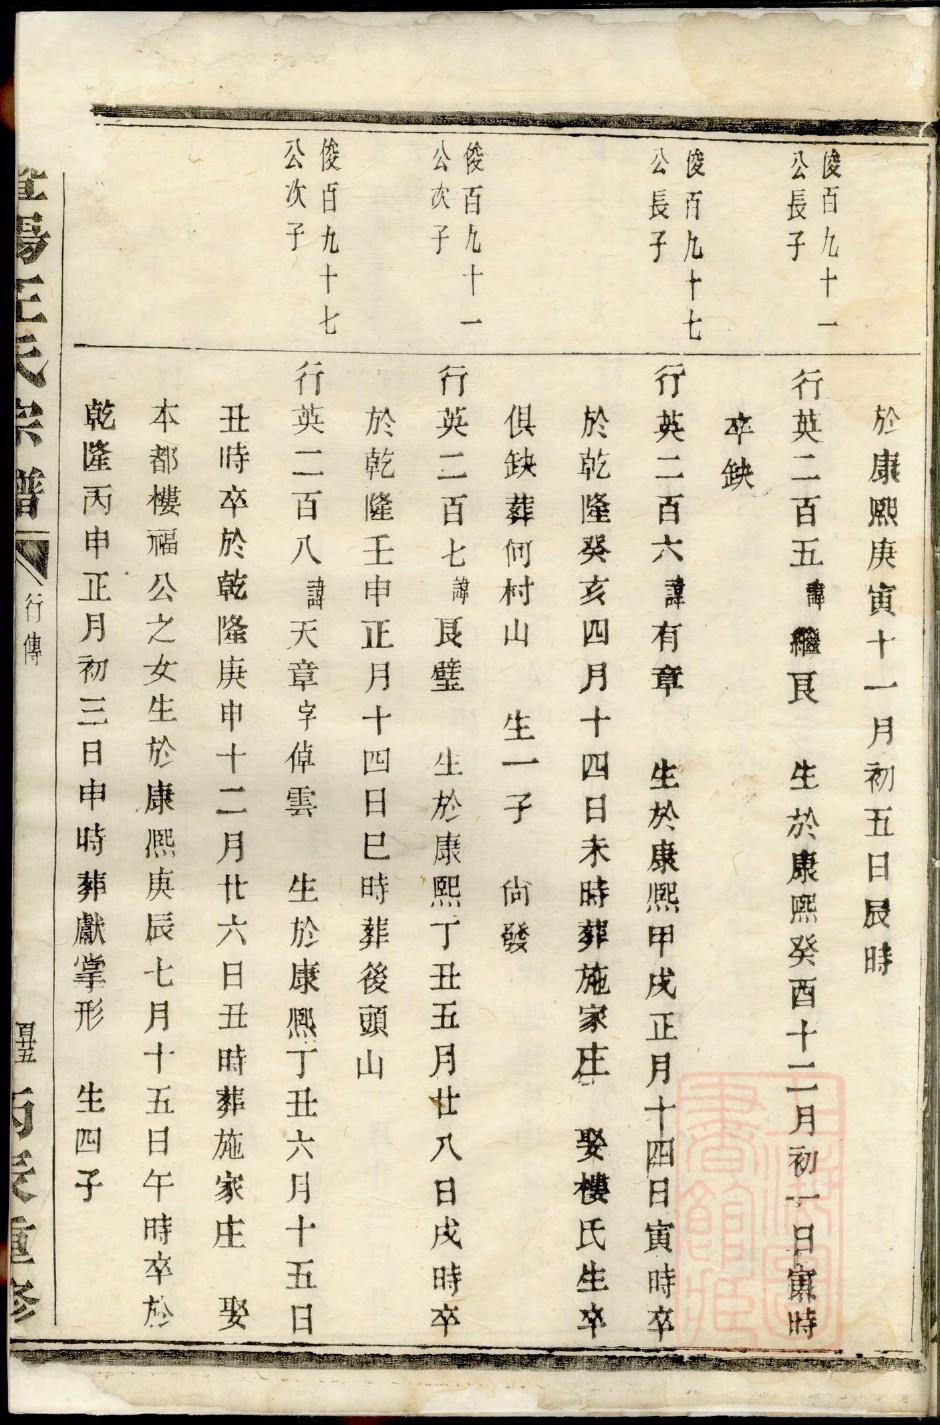 於康熙庚寅十一月初五日辰時
俊百九十一
公長子
行英二百五諱繼艮　生於康熙癸酉十二月初一日寅時
卒缺
俊百九十七
公長子
行英二百六諱有章　生於康熙甲戌正月十四日寅時卒
於乾隆癸亥四月十四日未時葬施家庄　娶樓氏生卒
俱缺葬何村山　生一子　尙發
俊百九十一
公次子
行英二百七諱艮璧　生於康熙丁丑五月廿八日戌時卒
於乾隆壬申正月十四日巳時葬後頭山
俊百九十七
公次子
行英二百八諱天章字倬雲　生於康熙丁丑六月十五日
丑時卒於乾隆庚申十二月廿六日丑時葬施家庄　娶
本都樓福公之女生於康熙庚辰七月十五日午時卒於
乾隆丙申正月初三日申時葬獻掌形　生四子
陽王氏宗譜
行傳
丙辰重修